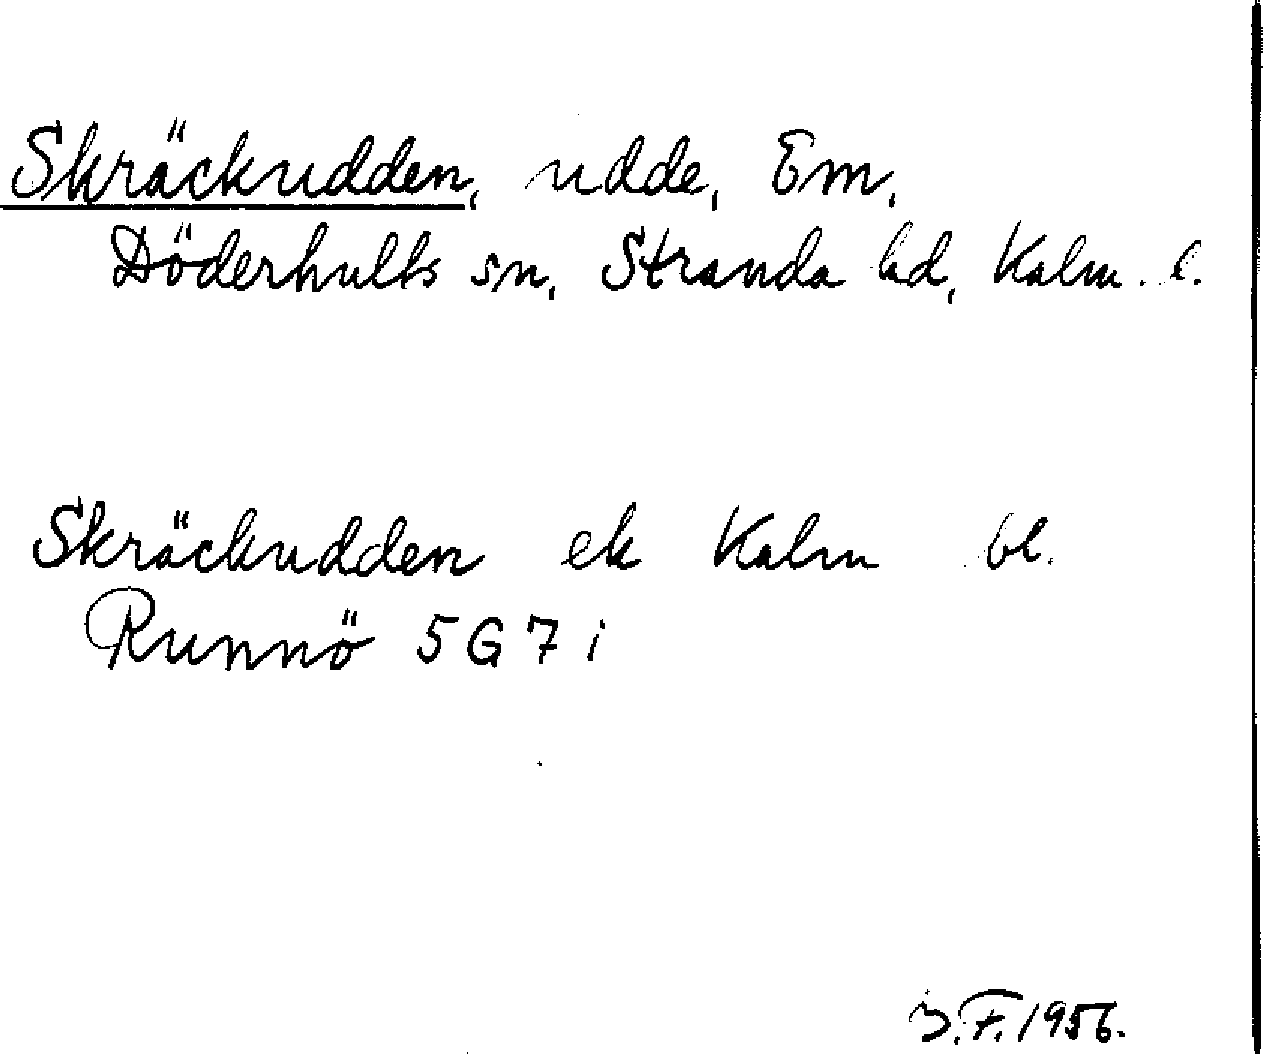 Skräckudden, udde, Em,
Döderhults sn, Stranda hd, Kalm. l.
Skräckudden ek Kalm bl.
Runnö 5 G 7 i
F. 1956.